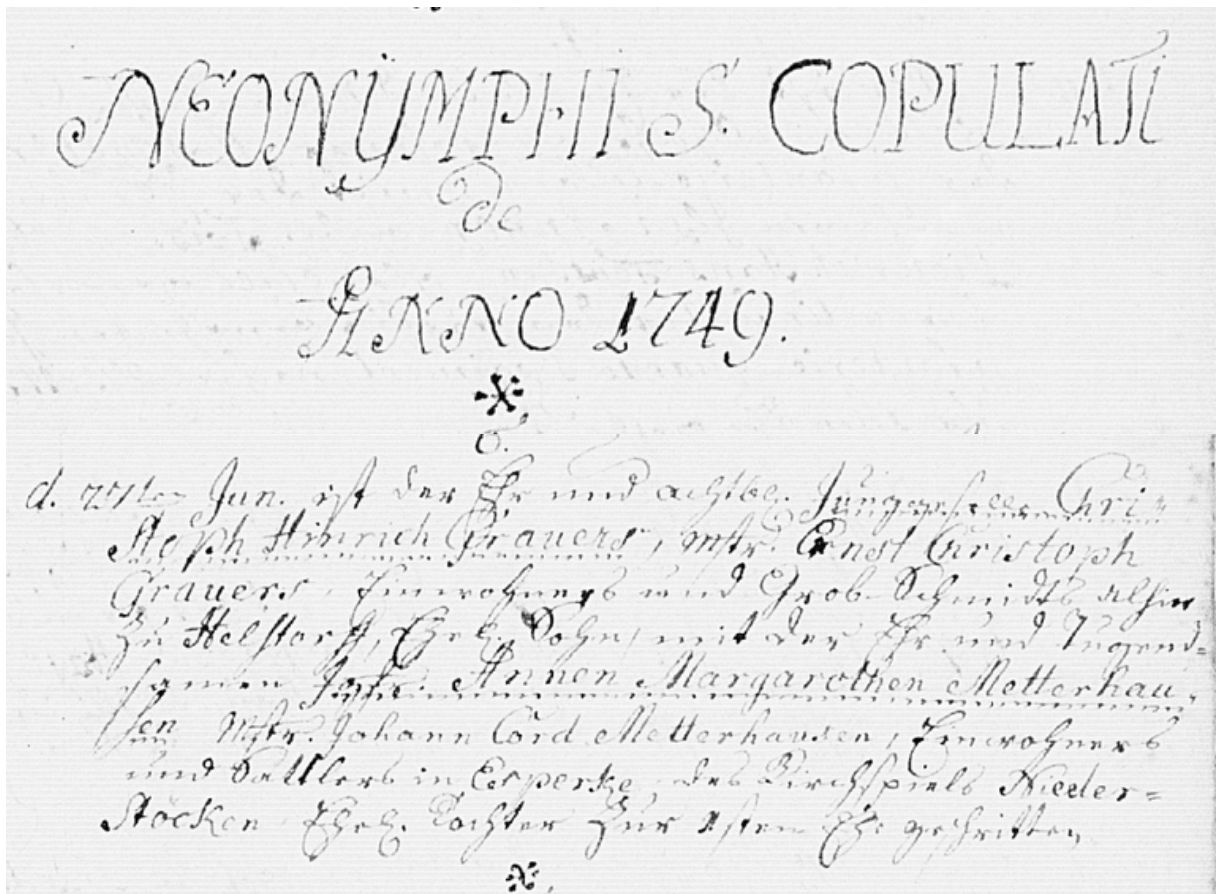 NEONŸMPHI S. COPULATI
de
ANNO 1749.
d. Jun. ist der Ehr und achtb. Junggeselle Chri=
stoph Hinrich Grauers, Mstr. Ernst Christoph
Grauers, Einwohners und Grob-Schmidts alhier
zu Helstorff, Ehel. Sohn, mit der Ehr und Tugend=
samen Jgfr. Annen Margarethen Metterhau=
sen Mstr. Johann Cord Metterhausen, Einwohners
und Sattlers in Esperke, des Kirchspiels Nieder=
Stöcken Ehel. Tochter zur 1sten Ehe geschritten